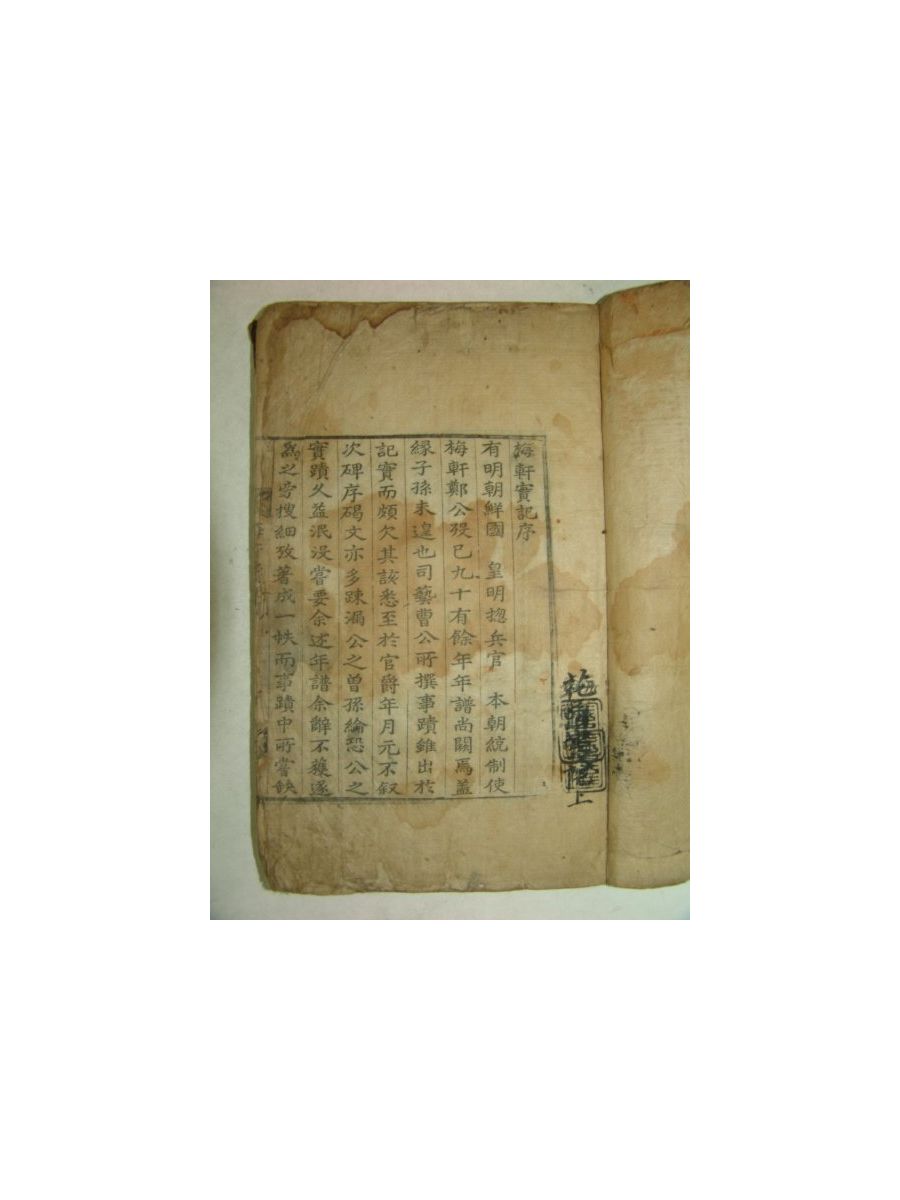 梅軒實記序
有明朝鮮國 皇明揔兵官 本朝統制使
梅軒鄭公歿已九十有餘年年譜尚闕焉盖
緣子孫未遑也司藝曹公所撰事蹟雖出於
記實而頗欠其該悉至於官爵年月元不叙
次碑序碣文亦多踈漏公之曾孫綸恐公之
實蹟久益泯没嘗要余述年譜余辭不獲遂
爲之旁搜細攷著成一帙而事蹟中所嘗缺
上